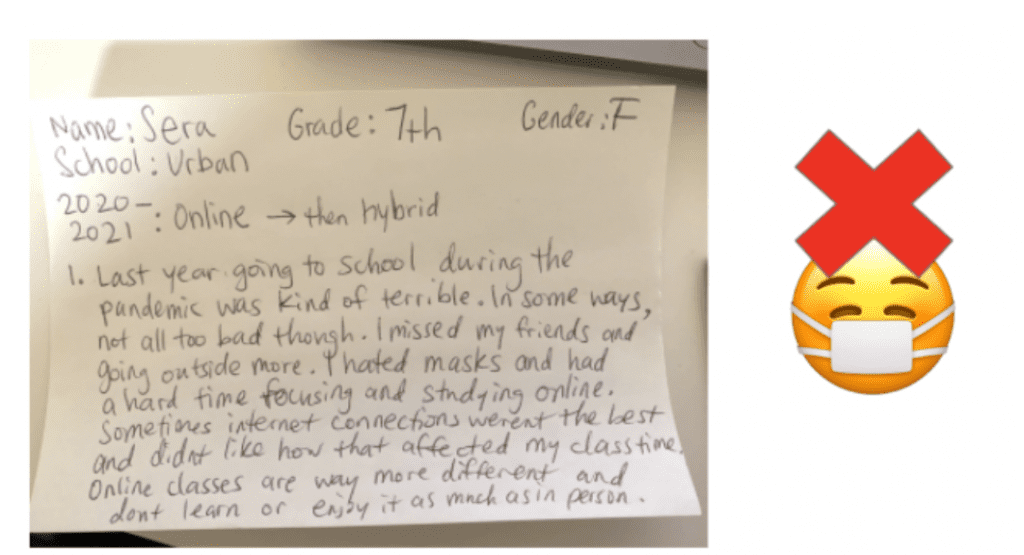 Name: Sera Grade: 7th Gender: F
School: Urban
2020-
2021 : Online → then hybrid
1. Last year going to school during the
pandemic was kind of terrible. In some ways,
not all too bad though. I missed my friends and
going outside more. I hated masks and had
a hard time focusing and studying online.
Sometimes internet connections werent the best
and didnt like how that affected my class time.
Online classes are way more different and
dont learn or enjoy it as much as in person.